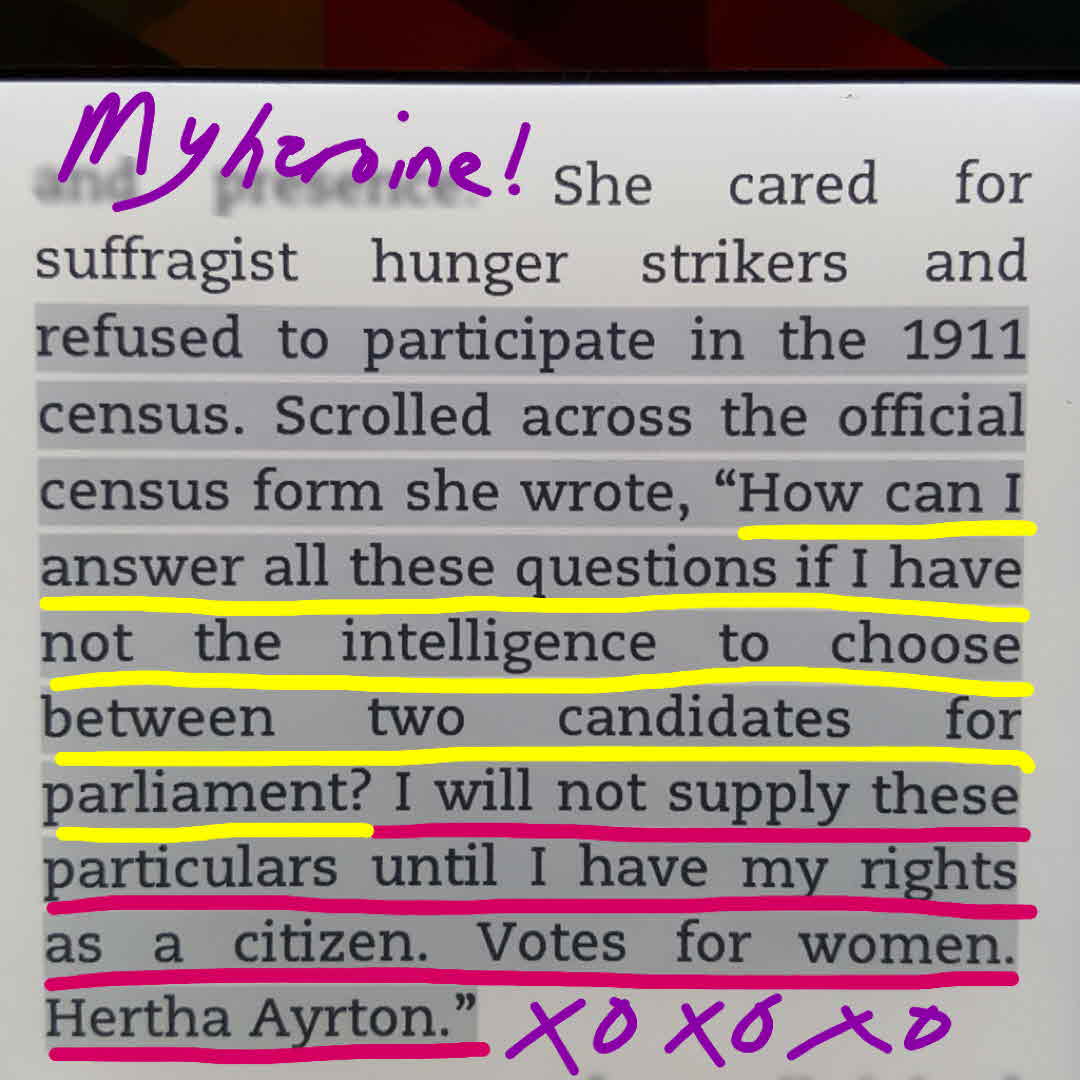 My heroine!
and presence. She cared for
suffragist hunger strikers and
refused to participate in the 1911
census. Scrolled across the official
census form she wrote, “How can I
answer all these questions if I have
not the intelligence to choose
between two candidates for
parliament? I will not supply these
particulars until I have my rights
as a citizen. Votes for women.
Hertha Ayrton.” xoxoxo